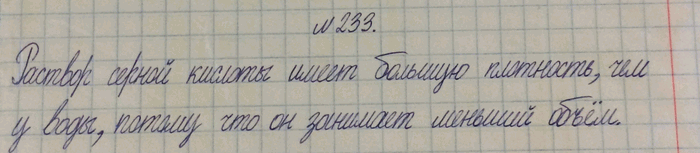 № 233.
Раствор серной кислоты имеет большую плотность, чем
у воды, потому что он занимает меньший объём.